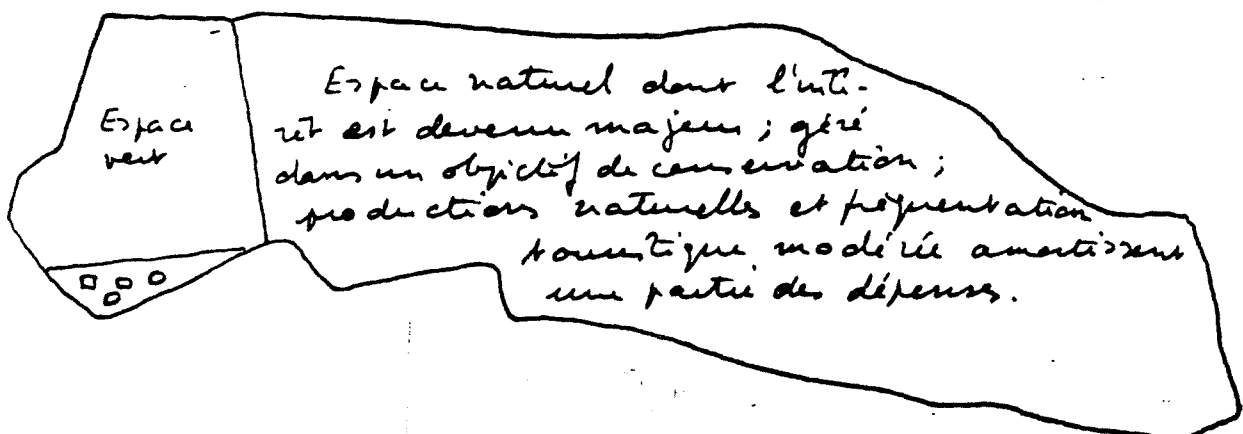 Espace naturel dont l'inté-
rêt est devenu majeur ; géré
dans un objectif de conservation ;
productions naturelles et fréquentation
touristique modérée amortissent
une partie des dépenses.
Espace
vert